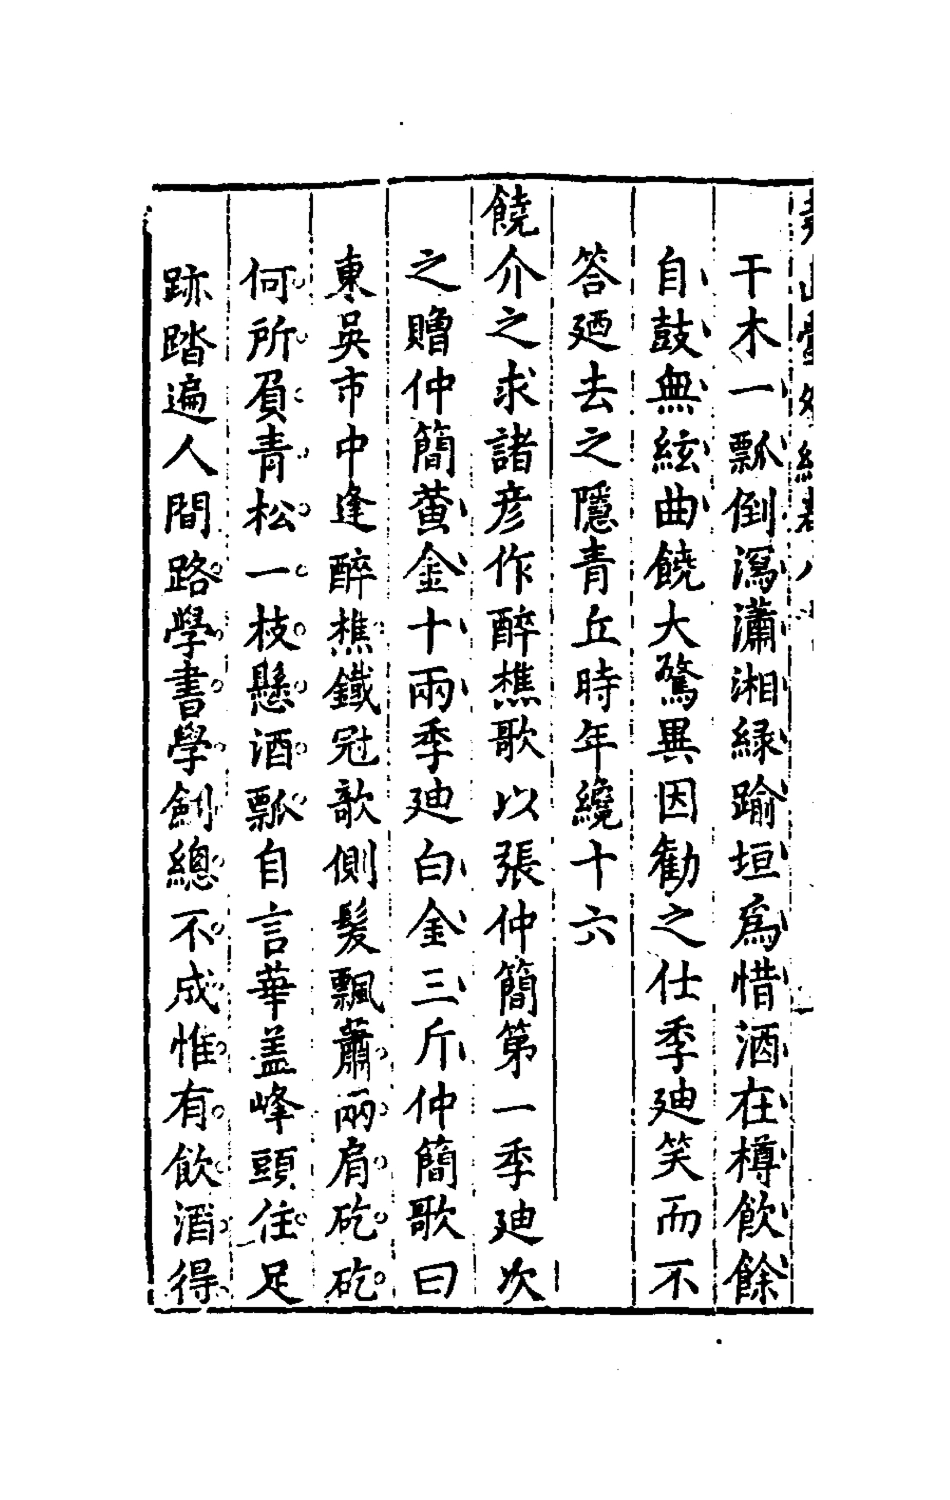 干木一瓢倒瀉瀟湘緑踰垣爲惜酒在樽飲餘
自鼓無絃曲饒大驚異因勸之仕季迪笑而不
答廼去之隱青丘時年纔十六
饒介之求諸彦作醉樵歌以張仲簡第一季迪次
之贈仲簡黄金十兩季迪白金三斤仲簡歌曰
東吳市中逢醉樵鐵冠欹側髮飄蕭兩肩矻矻
何所負青松一枝懸酒瓢自言華盖峰頭住足
跡踏遍人間路學書學劍總不成惟有飲酒得